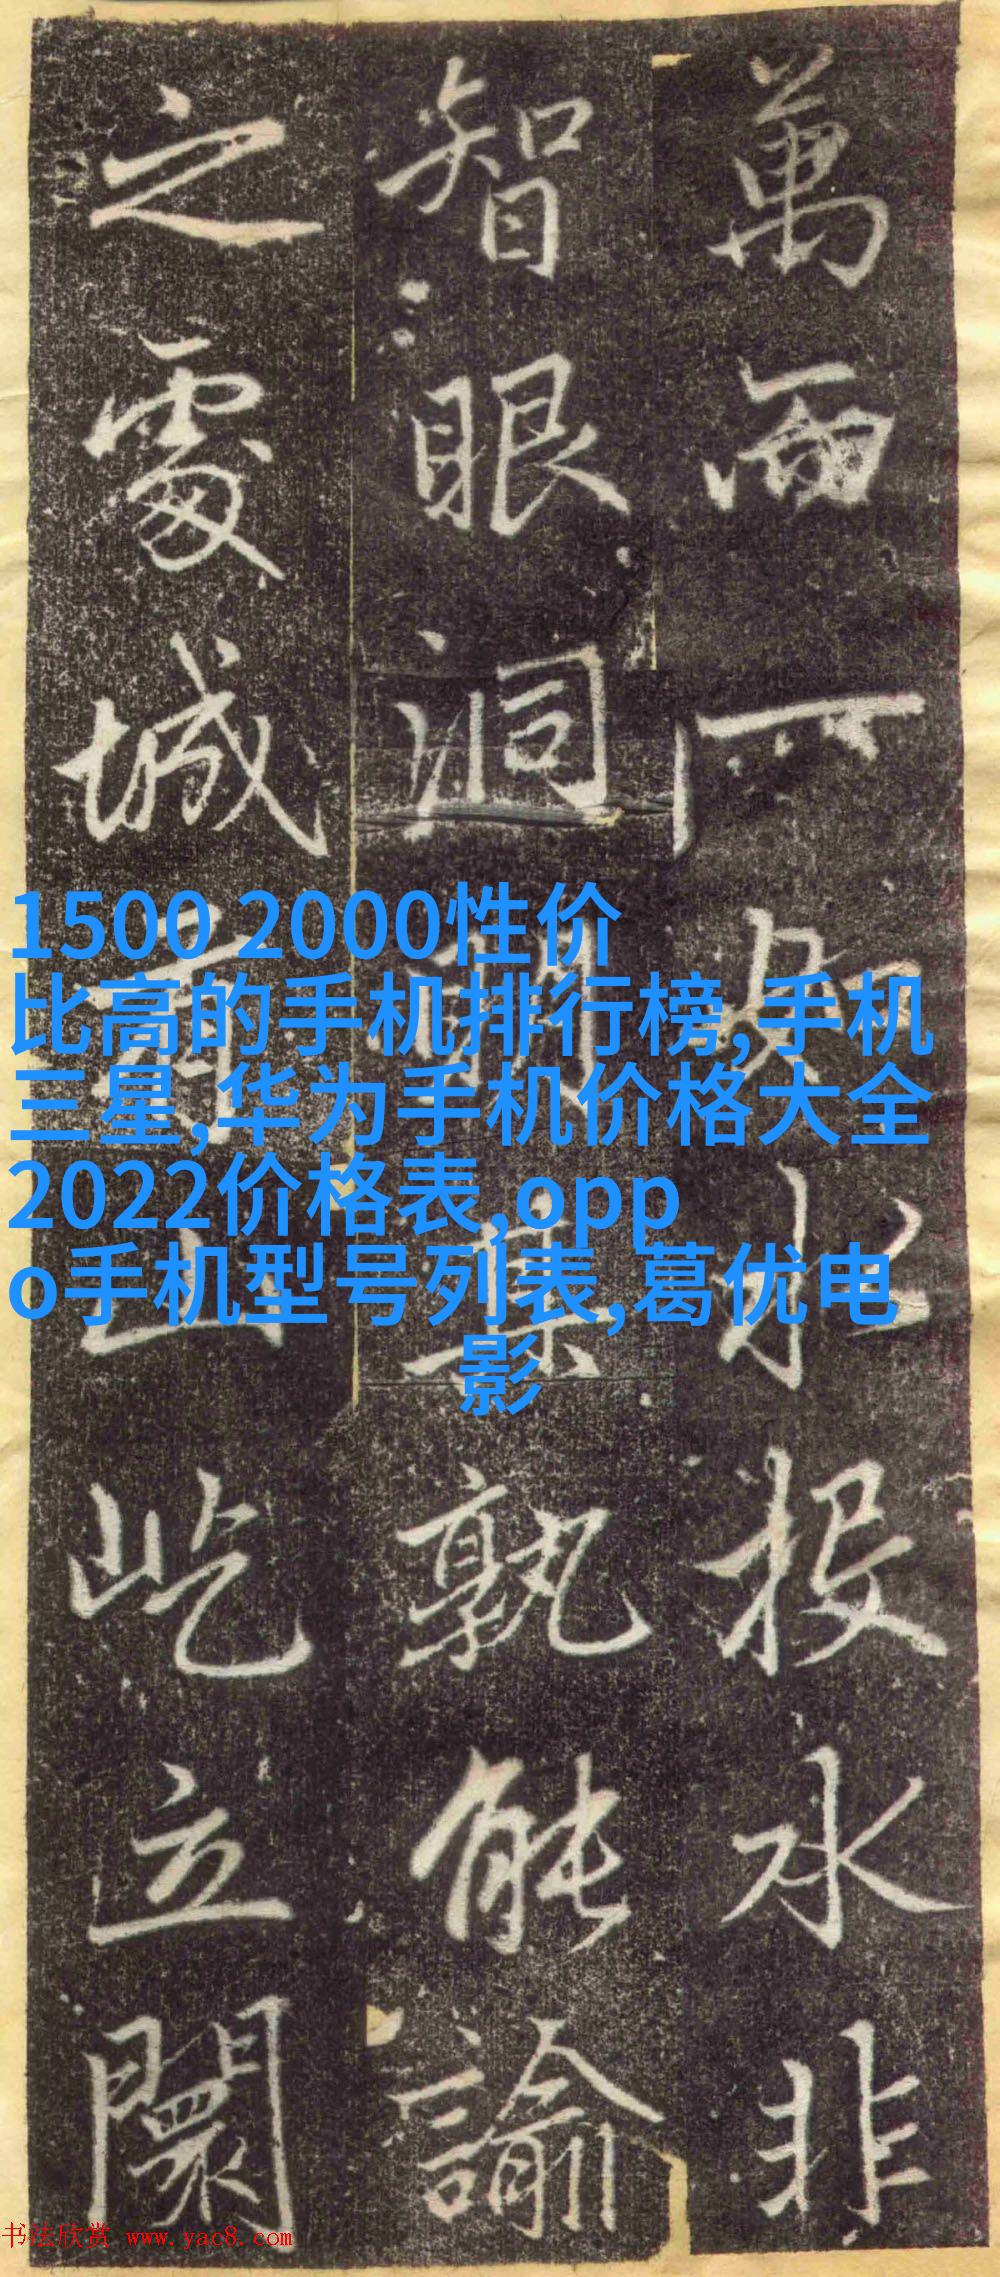 萬如水投水非
智眼洞其孰能諭
之處城山屹立闤
1500 2000性价
比高的手机排行榜,手机
三星,华为手机价格大全
2022价格表,opp
o手机型号列表,葛优电
影
书法欣赏 www.yac8.com